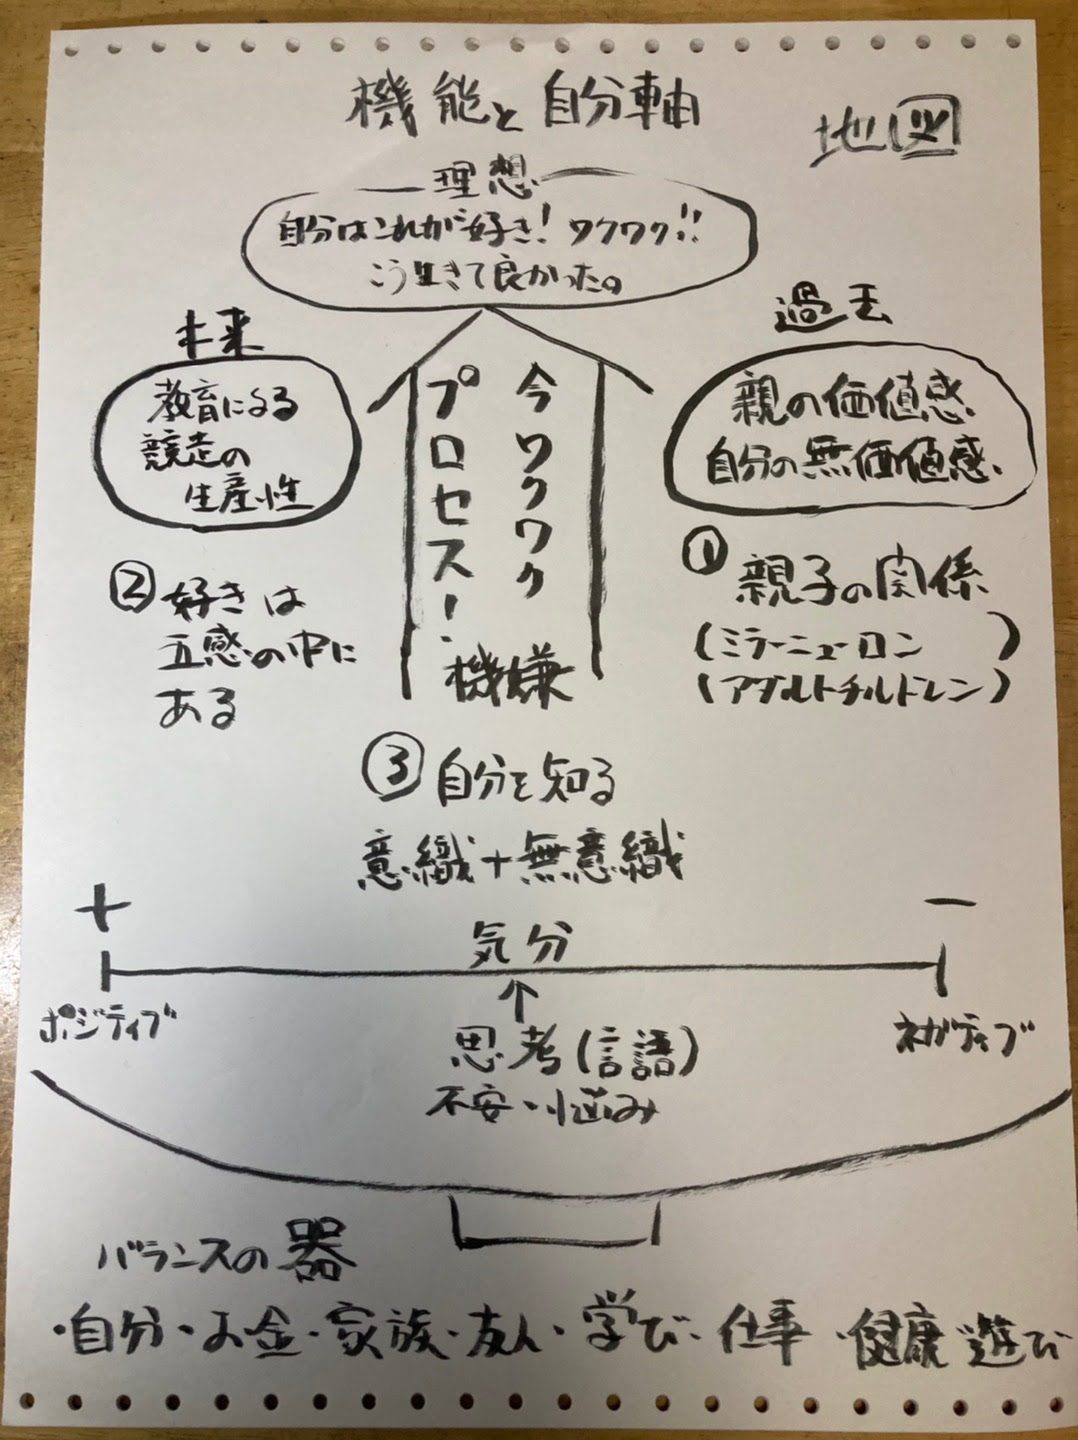 機能と自分軸
地図
理想
自分はこれが好き！ワクワク!!
こう生きて良かった。
未来
過去
教育による
競走の
生産性
親の価値感
自分の無価値感
今ワクワク
プロセス！
機嫌
①親子の関係
(ミラーニューロン)
(アダルトチルドレン)
②好きは
五感の中に
ある
③自分を知る
意織+無意織
+
−
気分
ポジティブ
ネガティブ
↑
思考(言語)
不安・悩み
バランスの器
・自分・お金・家族・友人・学び・仕事・健康 遊び